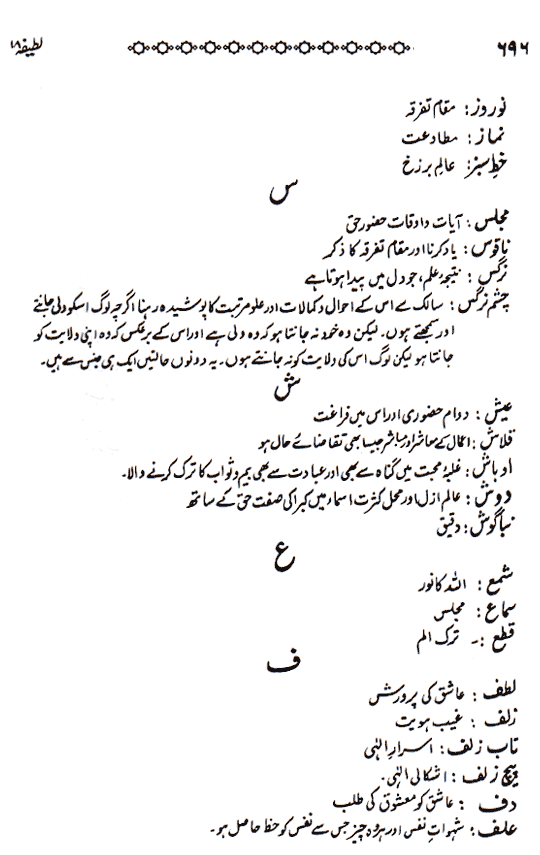 ۶۹۶ لطیفہ ۱۸
نوروز: مقام تفرقہ
نماز: مطاوعت
خط سبز: عالم برزخ
س
مجلس: آیات و اوقات حضور حق
ناقوس: یاد کرنا اور مقام تفرقہ کا ذکر
نرگس: نتیجۂ علم، جو دل میں پیدا ہوتا ہے
چشم نرگس: سالک سے اس کے احوال و کمالات اور علو مرتبت کا پوشیدہ رہنا اگرچہ لوگ اسکو ولی جانتے
اور سمجھتے ہوں۔ لیکن وہ خود نہ جانتا ہو کہ وہ ولی ہے اور اس کے برعکس کہ وہ اپنی ولایت کو
جانتا ہو لیکن لوگ اس کی ولایت کو نہ جانتے ہوں۔ یہ دونوں حالتیں ایک ہی جنس سے ہیں۔
ش
عیش: دوام حضوری اور اس میں فراغت
قلاش: اعمال کے معاشر اور مباشر جیسا بھی تقاضائے حال ہو
اوباش: غلبۂ محبت میں گناہ سے بھی اور عبادت سے بھی بیم و ثواب کا ترک کرنے والا۔
دوش: عالم ازل اور محل کثرت اسماء میں کبرا کی صفت حق کے ساتھ
بناگوش: دقیق
ع
شمع: اللہ کا نور
سماع: مجلس
قطع :۔ ترک الم
ف
لطف: عاشق کی پرورش
زلف: غیب ہویت
تاب زلف: اسرار الٰہی
پیچ زلف: اشکال الٰہی۔
دف: عاشق کو معشوق کی طلب
علف: شہوات نفس اور ہر وہ چیز جس سے نفس کو حظ حاصل ہو۔